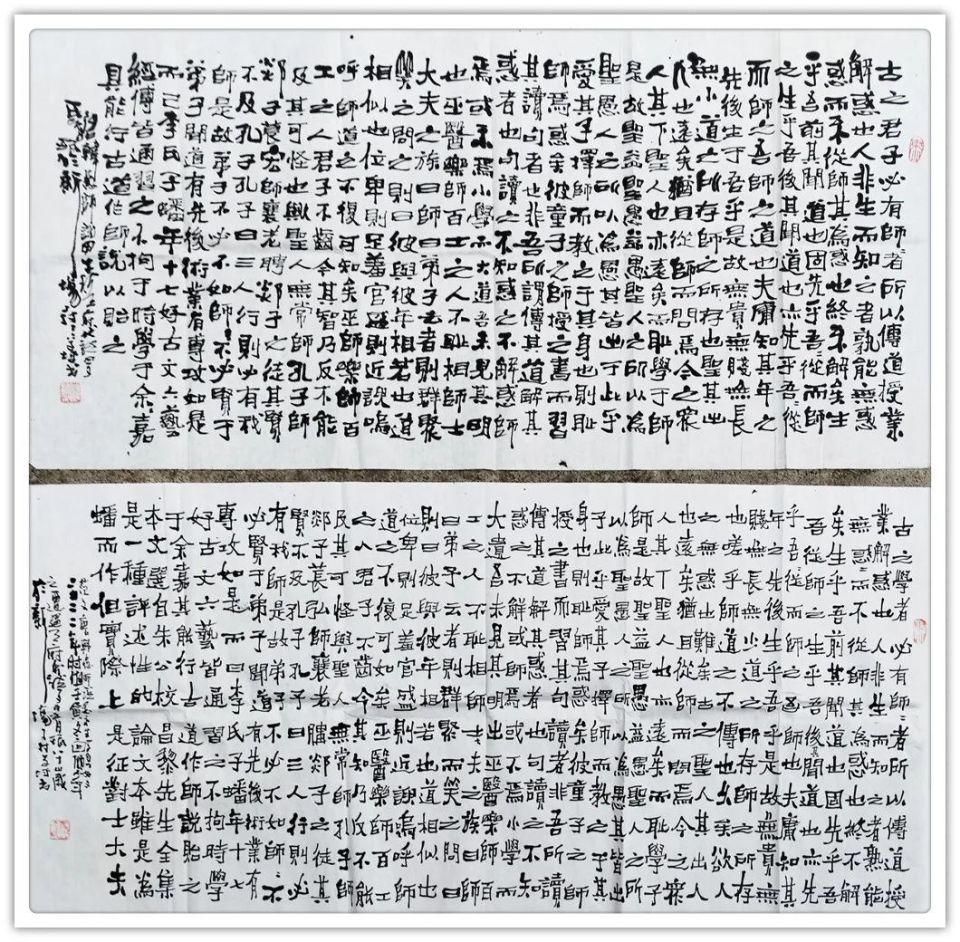 古之君子必有師者所以傳道授業
解惑也人非生而知之者孰能無惑
惑而不從師其為惑也終不解矣生
乎吾前其聞道也固先乎吾從而師
之生乎吾後其聞道也亦先乎吾從
而師之吾師之道也夫庸知其年之
先後生于吾乎是故無貴無賤無長
無小道之所存師之所存也聖其出
人也遠矣猶且從師而問焉今之眾
人其下聖人也亦遠矣而恥學于師
是故聖益聖愚益愚聖人之所以為
聖愚人之所以為愚其皆出于此乎
愛其子擇師而教之于其身也則恥
師焉惑矣彼童子之師授之書而習
其讀句者也非吾所謂傳其道解其
惑者也句讀之不知惑之不解惑師
焉或不焉小學而大遺吾未見其明
也巫醫樂師百工之人不恥相師士
大夫之族曰師曰弟子云者則群聚
笑之問之則曰彼與彼年相若也道
相似也位卑則足羞官盛則近諛嗚
呼師道之不復可知矣巫師樂師百
工之人君子不齒今其智乃反不能
及其可怪也歟聖人無常師孔子師
郯子萇宏師襄老聃郯子之徒其賢
不及孔子孔子曰三人行則必有我
師是故弟子不必不如師師不必賢于
弟子聞道有先後術業有專攻如是
而已李氏子蟠年十七好古文六藝
經傳皆通習之不拘于時學于余嘉
具能行古道作師說以貽之
古之學者必有師=者所以傳道授
業解惑也人非生而知之者熟能
無惑惑而不從師其為惑也終不解
矣生乎吾前其聞道也固先乎吾
吾從而師之生乎吾後聞道也亦先
乎吾從而師之吾師也夫庸知其
年之先後生于吾乎是故無貴無
賤無長無少道之所存師之所存
也嗟乎師道之不傳也久矣欲人
之無惑也難矣古之聖人其出人
也遠矣猶且從師而問焉今之眾
人其下聖人也亦遠矣而恥學于
師是故聖益聖愚益愚聖人之所
以為聖愚人之所以為愚其皆出
于此乎愛其子擇師而教
惑矣彼童子之師
授之書而習其句讀者非吾所
傳其道解其惑者也句讀之不知
惑之不解或師焉或不焉小學而
大遺吾未見其明也巫醫樂師百
工之人不恥相師士大夫之族曰師
曰弟子云者則群聚而笑之問曰
則曰彼與彼年相若也道相似也
位卑則足羞官盛則近諛嗚呼師
道之不復可知矣巫醫樂師百工
之人君子不齒今其知乃反不能
及其可怪與聖人無常師孔子師
郯子萇弘師襄老聃郯子之徒其
賢不及孔子孔子曰三人行則必
有我師是故弟子不必不如師不
必賢于弟子聞道有先後術業有
專攻如是而曰李氏子蟠年十七
好古文六藝皆通習之不拘時學
于余嘉其能行古道作師說貽之
本文選自朱公校昌黎先生全集
是一種評述性的論文本雖是為
蟠而作但實際上是征對士大夫